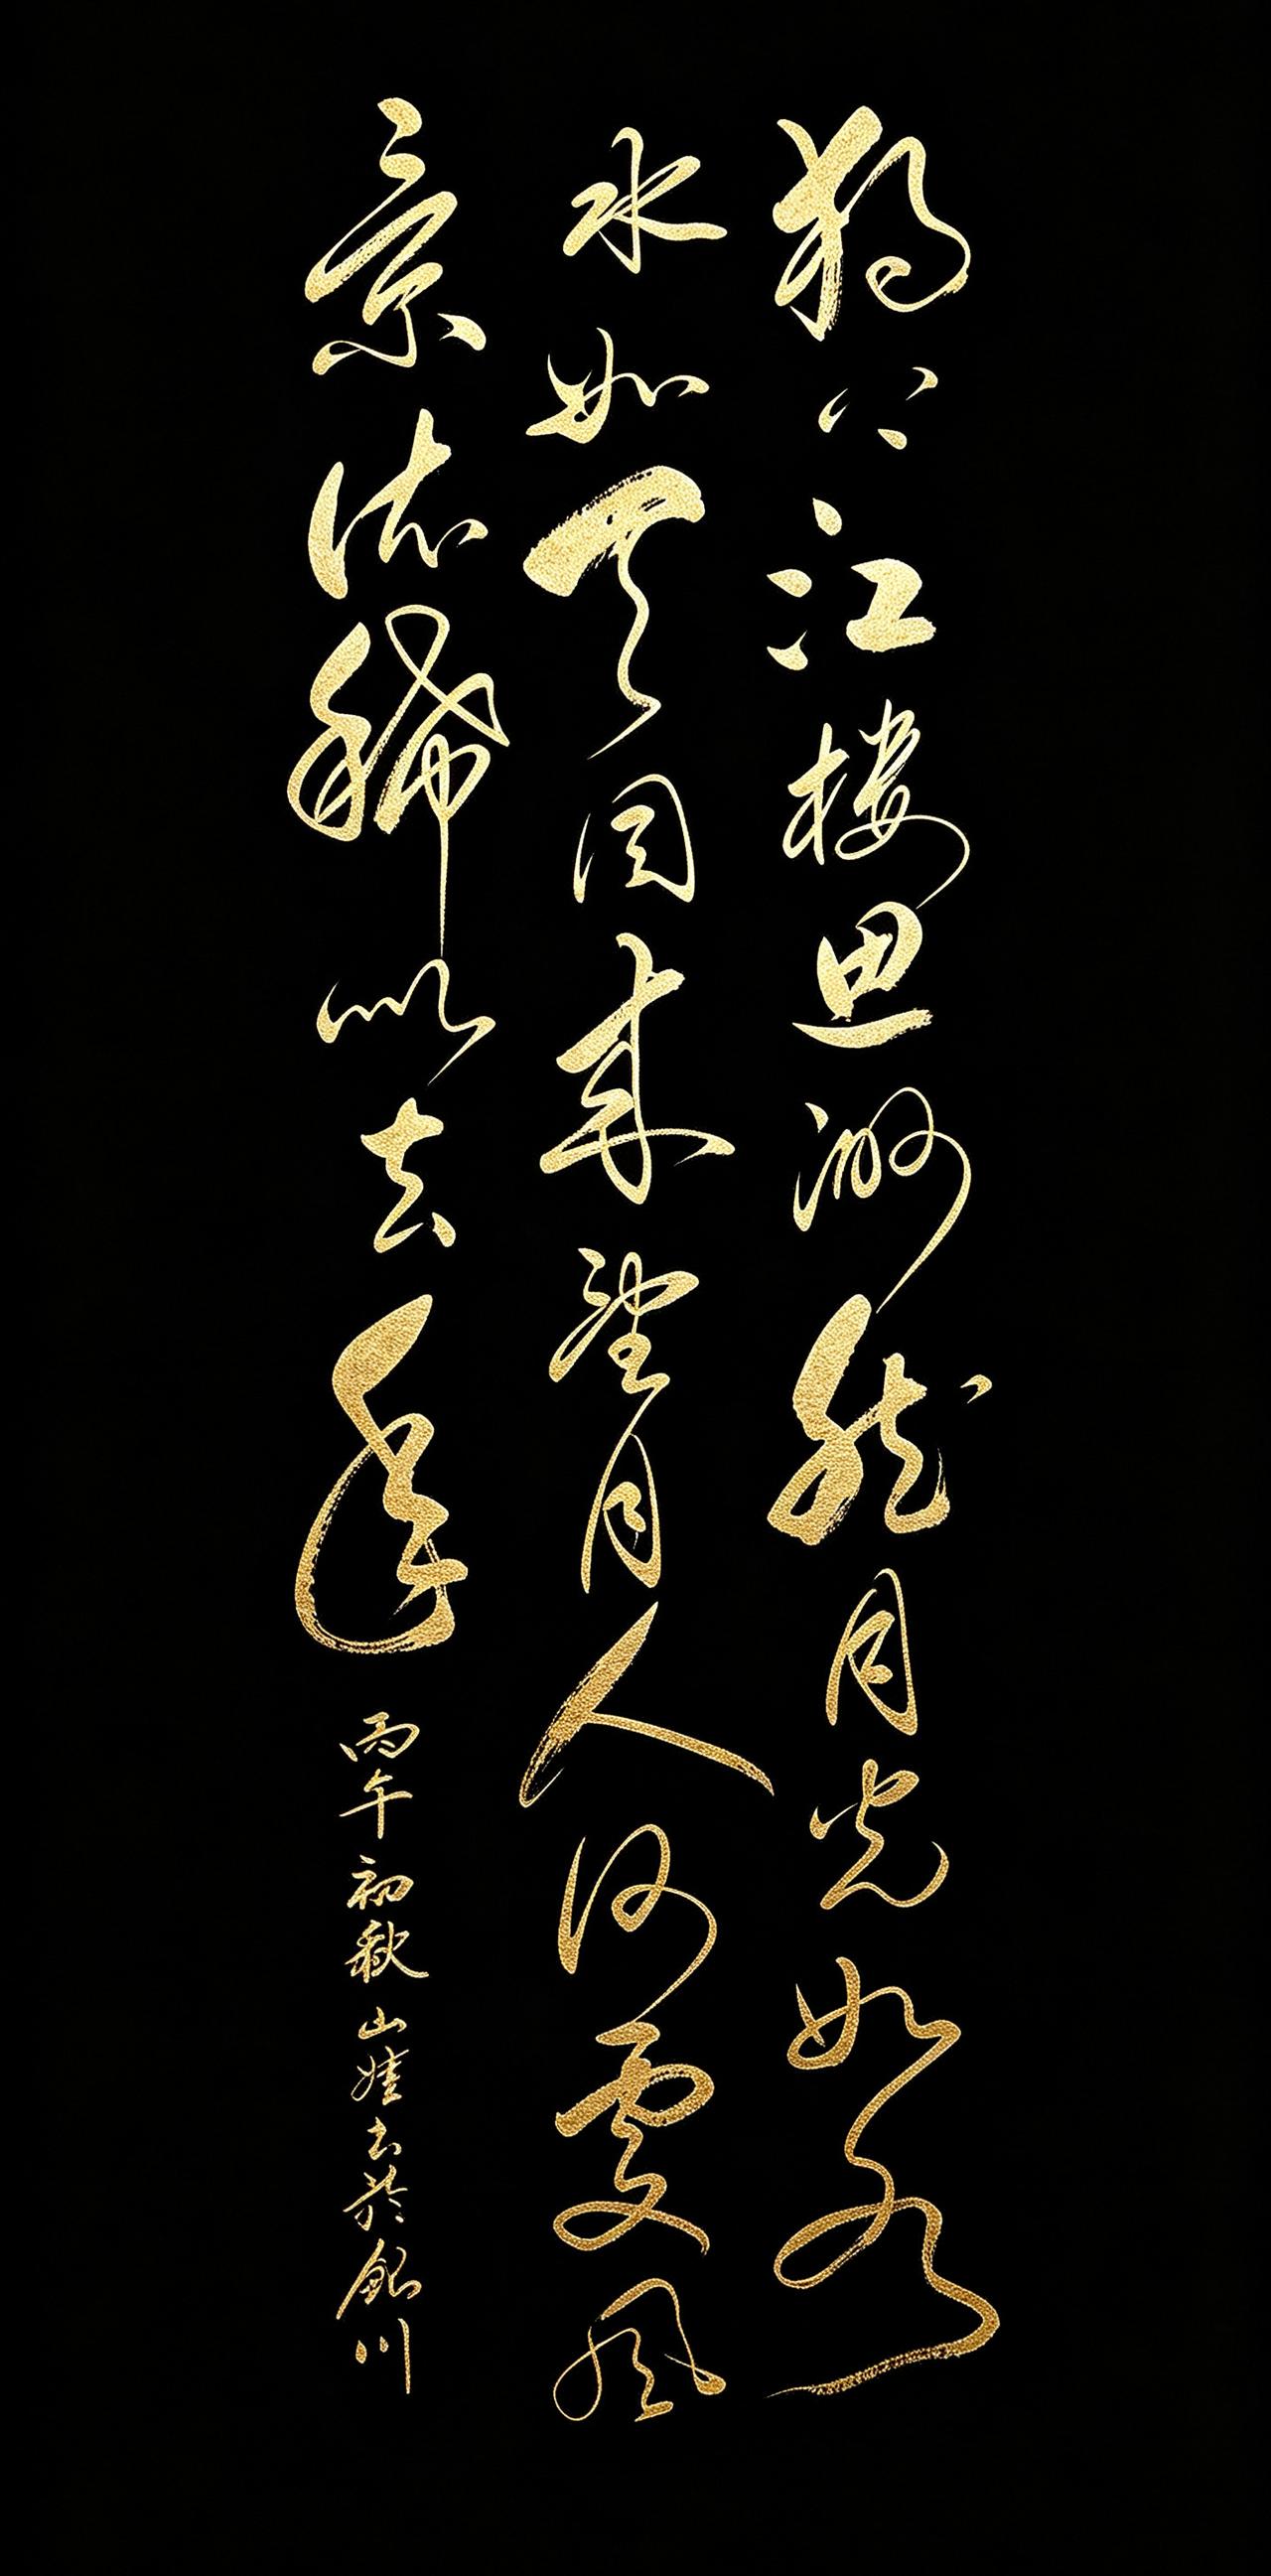 独上江楼思渺然月光如水
水如天同来望月人何處風
景依稀似去年
丙午初秋山娃书於銀川